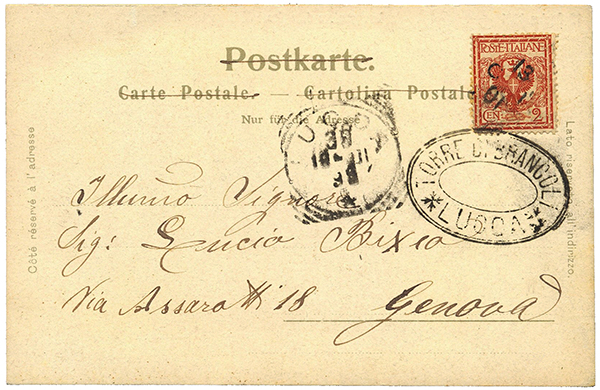 Postkarte.
Carte Postale. — Cartolina Postale
Nur für die Adresse
POSTE·ITALIANE
CEN. 2
LUCCA
TORRE DI BRANCOLI
*LUCCA*
Côté réservé à l'adresse
Lato riservato all'indirizzo.
Illumo Signore
Sig: Lucio Bixio
Via Assarotti 18 Genova